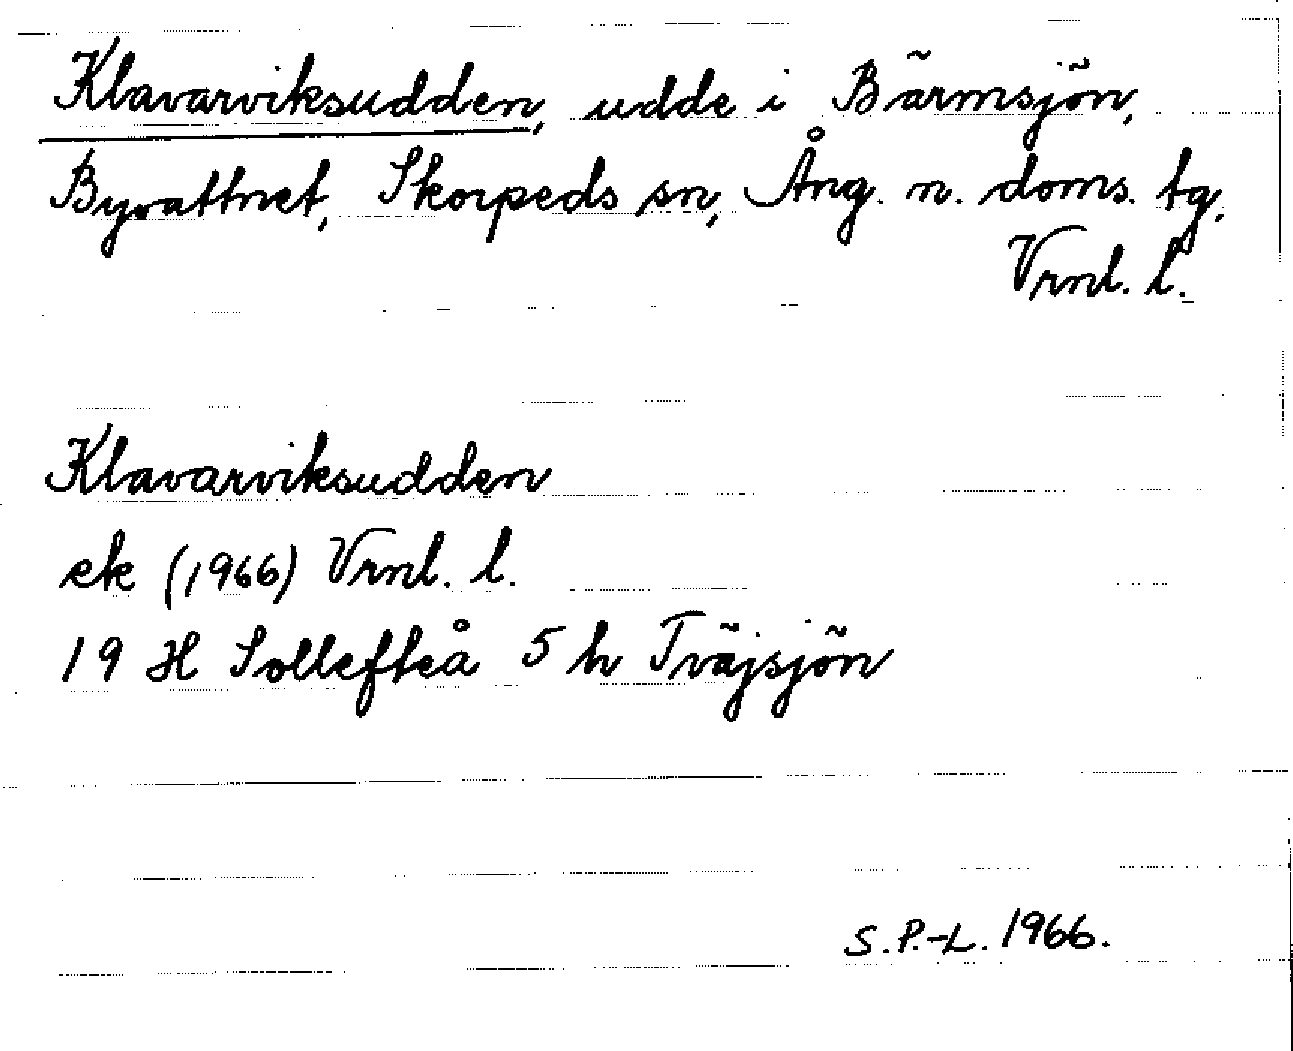 Klavarviksudden, udde i Bärmsjön,
Byvattnet, Skorpeds sn, Ång. n. doms. tg,
Vrnl. l.
Klavarviksudden
ek (1966) Vrnl. l.
19 H Sollefteå 5 h Tväjsjön
S.P.-L. 1966.